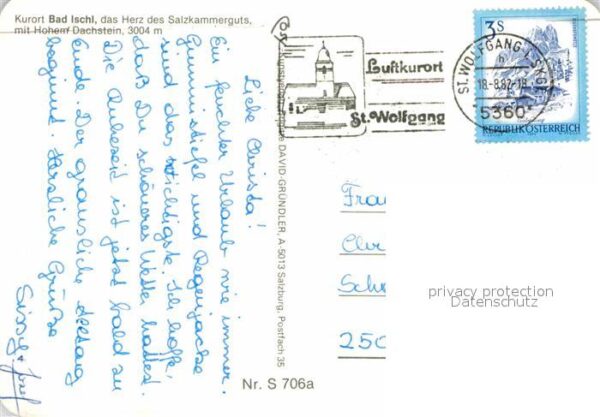 Kurort Bad Ischl, das Herz des Salzkammerguts,
mit Hohem Dachstein, 3004 m
Liebe Christa!
Ein feuchter Urlaub wie immer.
Gummistiefel und Regenjacke
sind das wichtigste. Ich hoffe,
daß Du schöneres Wetter hattest.
Die Ruhezeit ist jetzt bald zu
Ende. Der grausliche Alltag
beginnt. Herzliche Grüße
Sissy + Josef
DAVID-GRÜNDLER, A-5013 Salzburg, Postfach 35
Nr. S 706a
Luftkurort
St. Wolfgang
ST. WOLFGANG I. SKGT
b
18.-8.82-18
5360
3S
REPUBLIK ÖSTERREICH
Frau
Chr
Sch
250
privacy protection
Datenschutz